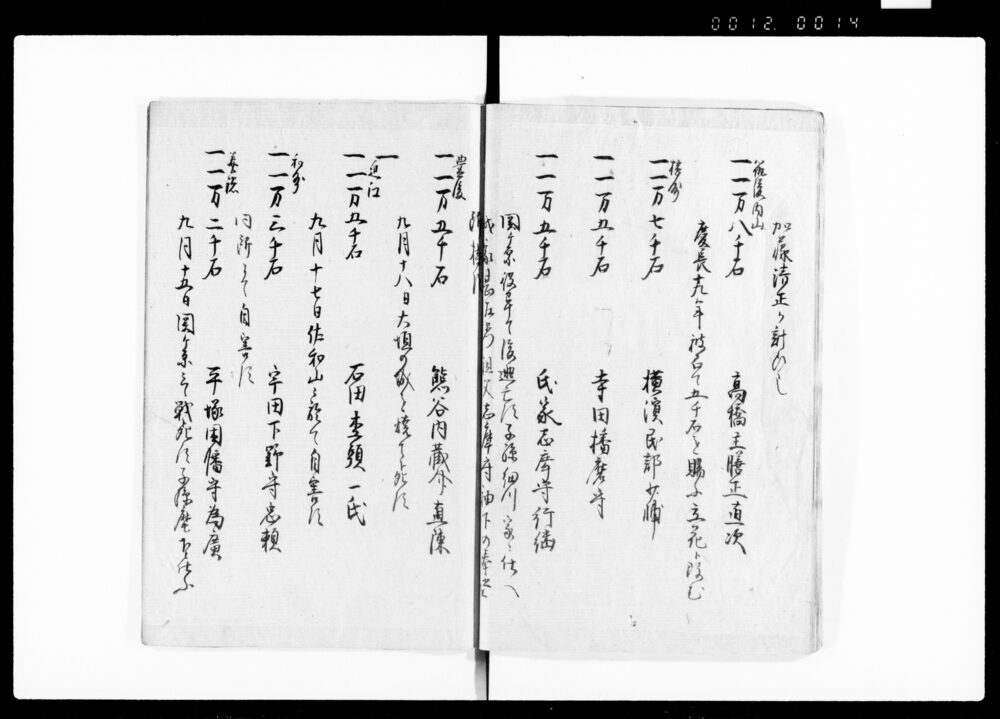 0012.0014
加藤清正か計ひし
筑後内山
一一万八千石 高橋主膳正直次
慶長十九年被召て五千石を賜ふ立花と改む
一一万七千石 横濱民部少輔
一一万五千石 寺田播磨守
一一万五千石 氏家志摩守行継
関ケ原役畢て後 子孫細川家に仕へ
祖父志摩守
豊後
一一万五千石 熊谷内蔵介直陳
九月十八日大垣の城に死す
一
近江
一一万五千石 石田 頭一氏
九月十七日佐和山に於て自害す
和州
一一万三千石 宇田下野守忠頼
同所にて自害す
美濃
一一万二千石 平塚因幡守為廣
九月十五日関ケ原にて戦死す子孫麾下に仕ふ